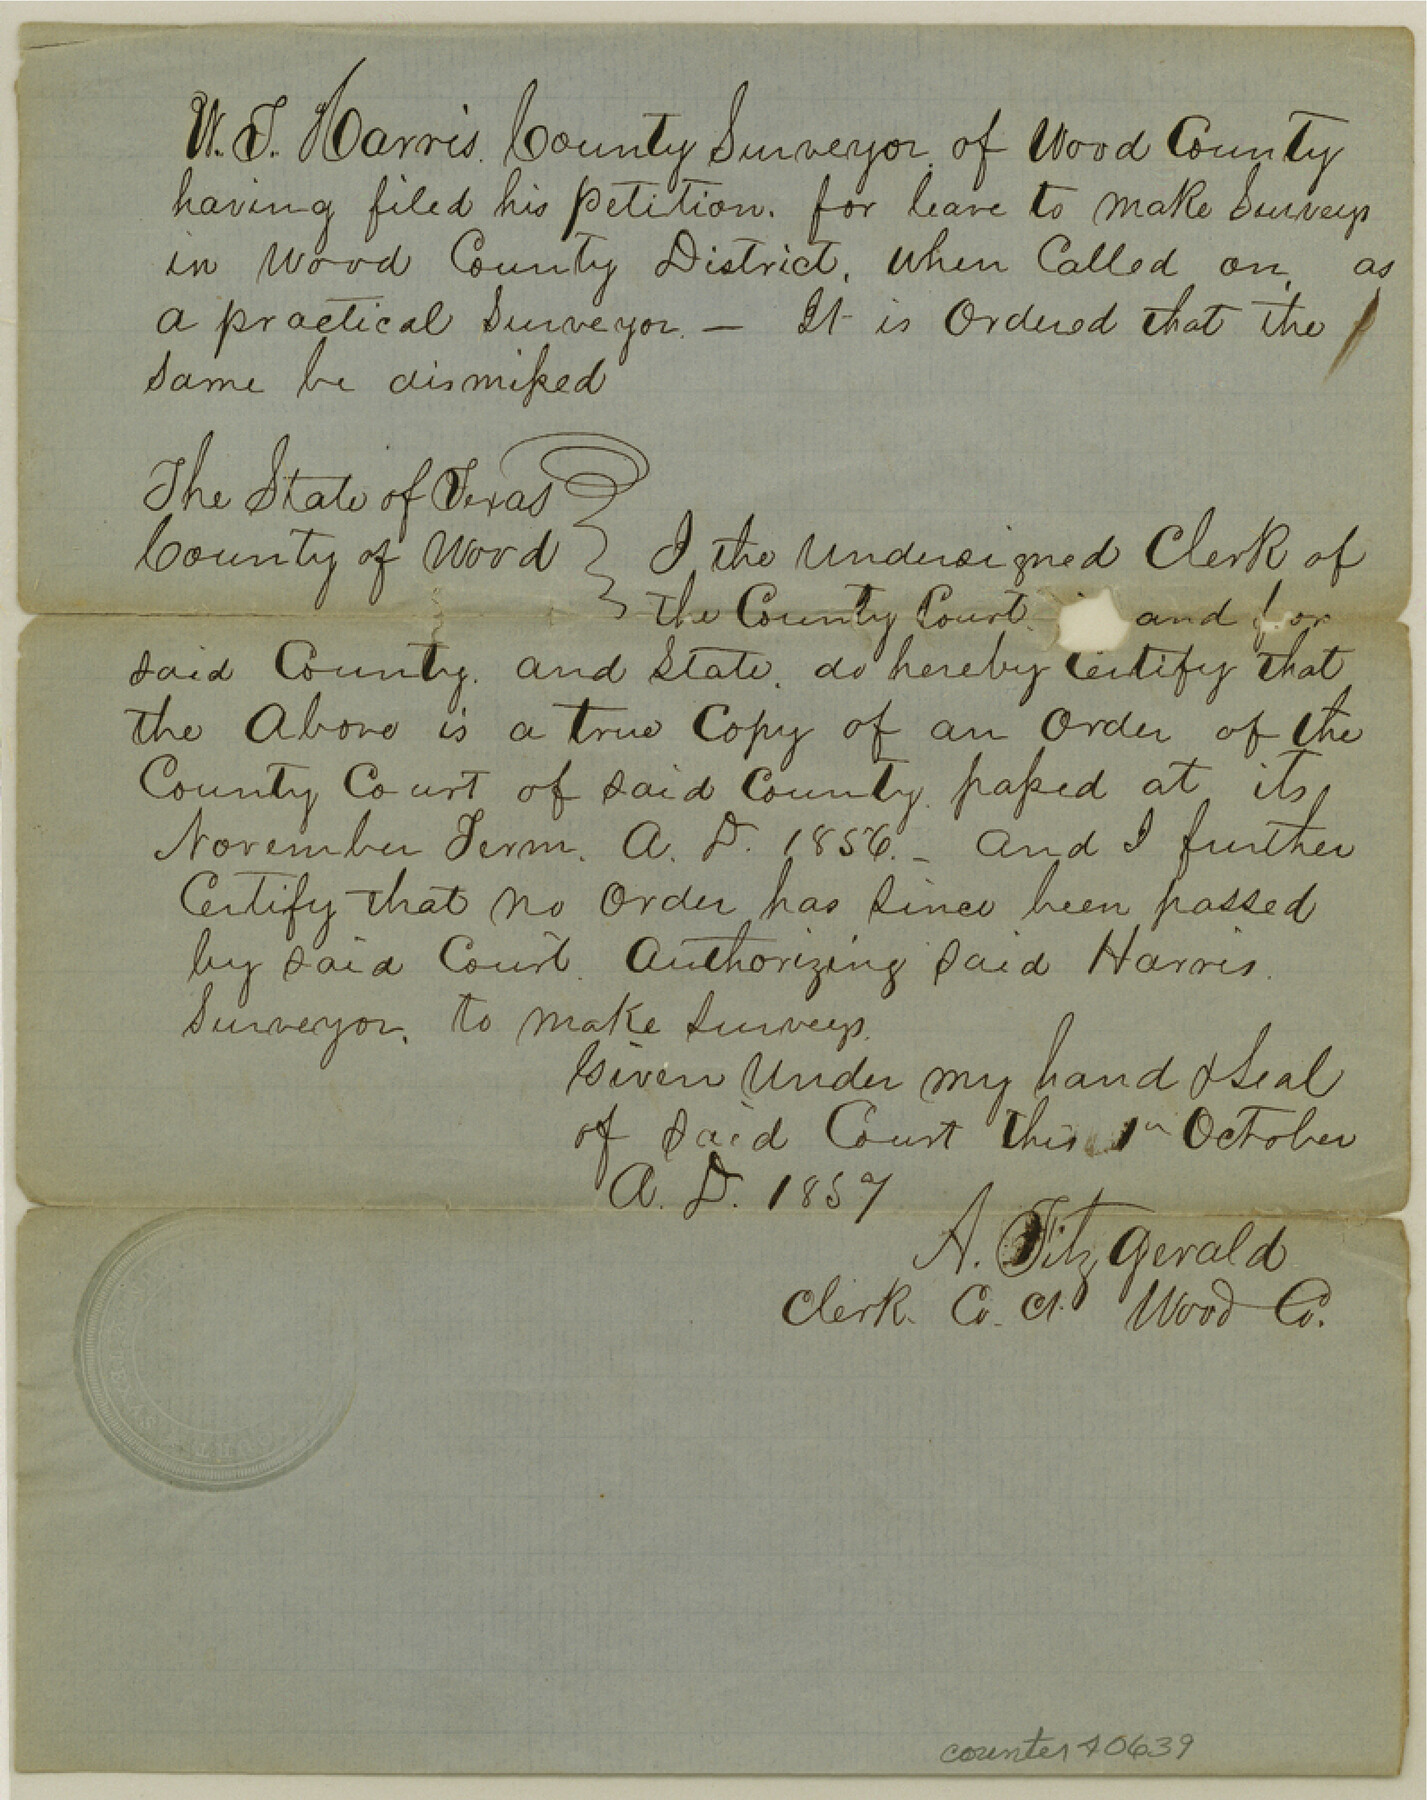 W. T. Harris. County Surveyor of Wood County
having filed his petition. for leave to make Surveys
in Wood County District, when Called on, as
a practical Surveyor. — It is Ordered that the
same be dismissed
The State of Texas
County of Wood
I the undersigned Clerk of
the County Court. and for
said County. and State. do hereby Certify that
the Above is a true Copy of an Order of the
County Court of said County. passed at its
November Term. A. D. 1856. – And I further
Certify that no Order has since been passed
by said Court. Authorizing said Harris.
Surveyor, to make surveys.
Given Under my hand & Seal
of said Court this 1st October
A. D. 1857
A. Fitz Gerald
Clerk. Co. Ct. Wood Co.
counter 40639